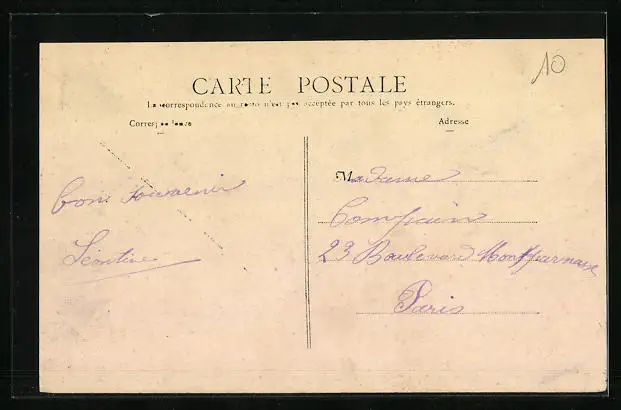 10
CARTE POSTALE
La correspondance au recto n'est pas acceptée par tous les pays étrangers.
Correspondance
Adresse
bon souvenir
Léontine
Madame
Compain
23 Boulevard Montparnasse
Paris